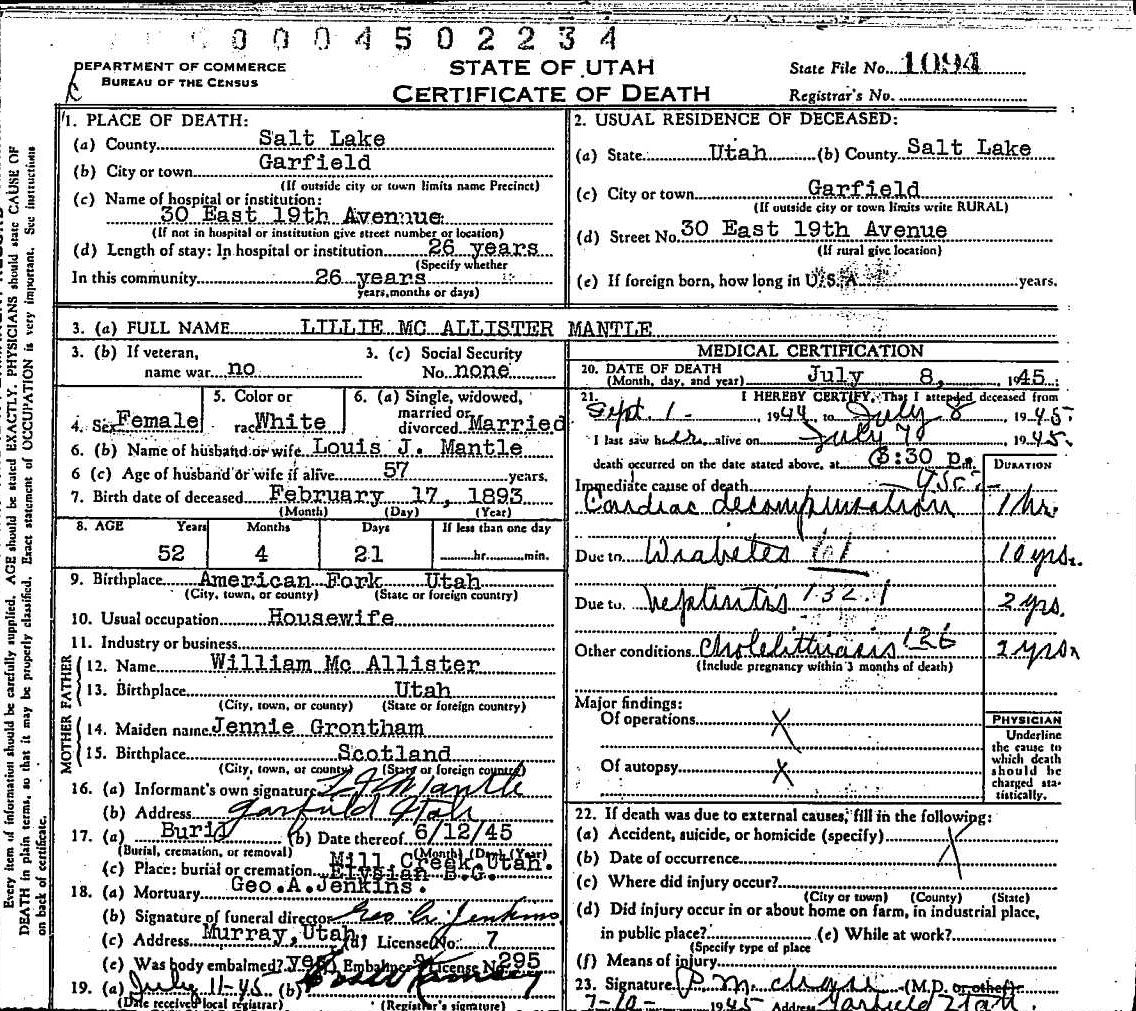 0 0 0 4 5 0 2 2 3 4
DEPARTMENT OF COMMERCE
BUREAU OF THE CENSUS
STATE OF UTAH
CERTIFICATE OF DEATH
State File No. 1094
Registrar's No.
Every item of information should be carefully supplied. AGE should be stated EXACTLY. PHYSICIANS should state CAUSE OF
DEATH in plain terms, so that it may be properly classified. Exact statement of OCCUPATION is very important. See instructions
on back of certificate.
1. PLACE OF DEATH:
(a) County Salt Lake
(b) City or town Garfield
(If outside city or town limits name Precinct)
(c) Name of hospital or institution:
30 East 19th Avenue
(If not in hospital or institution give street number or location)
(d) Length of stay: In hospital or institution 26 years
(Specify whether
In this community 26 years
years, months or days)
2. USUAL RESIDENCE OF DECEASED:
(a) State Utah (b) County Salt Lake
(c) City or town Garfield
(If outside city or town limits write RURAL)
(d) Street No. 30 East 19th Avenue
(If rural give location)
(e) If foreign born, how long in U.S.A. years.
3. (a) FULL NAME LILLIE MC ALLISTER MANTLE
3. (b) If veteran,
name war no
3. (c) Social Security
No. none
4. Sex Female
5. Color or
race White
6. (a) Single, widowed,
married or
divorced Married
6. (b) Name of husband or wife Louis J. Mantle
6 (c) Age of husband or wife if alive 57 years.
7. Birth date of deceased February 17, 1893
(Month) (Day) (Year)
8. AGE Years Months Days If less than one day
52 4 21 hr. min.
9. Birthplace American Fork Utah
(City, town, or county) (State or foreign country)
10. Usual occupation Housewife
11. Industry or business
FATHER
12. Name William Mc Allister
13. Birthplace Utah
(City, town, or county) (State or foreign country)
MOTHER
14. Maiden name Jennie Grontham
15. Birthplace Scotland
(City, town, or county) (State or foreign country)
16. (a) Informant's own signature L J Mantle
(b) Address Garfield Utah
17. (a) Buril (b) Date thereof 6/12/45
(Burial, cremation, or removal) (Month) (Day) (Year)
Mill Creek, Utah.
(c) Place: burial or cremation Elysian B.G.
18. (a) Mortuary Geo.A.Jenkins.
(b) Signature of funeral director Geo A. Jenkins
(c) Address Murray, Utah (d) License No. 7
(e) Was body embalmed? yes Embalmer's License No. 295
19. (a) July 11-45 (b)
(Date received local registrar) (Registrar's signature)
MEDICAL CERTIFICATION
20. DATE OF DEATH
(Month, day, and year) July 8, 1945
21. I HEREBY CERTIFY, That I attended deceased from
Sept. 1- 1944 to July 8 1945.
I last saw her alive on July 7 1945.
death occurred on the date stated above, at 8:30 p.m.
DURATION
Immediate cause of death
Cardiac decompensation 1 hr.
Due to Diabetes 61 10 yrs.
Due to nephritis 132.1 2 yrs.
Other conditions cholelithiasis 126 2 yrs.
(Include pregnancy within 3 months of death)
Major findings:
Of operations X
Of autopsy X
PHYSICIAN
Underline
the cause to
which death
should be
charged sta-
tistically.
22. If death was due to external causes, fill in the following:
(a) Accident, suicide, or homicide (specify) X
(b) Date of occurrence
(c) Where did injury occur?
(City or town) (County) (State)
(d) Did injury occur in or about home on farm, in industrial place,
in public place? (e) While at work?
(Specify type of place
(f) Means of injury
23. Signature P. M. (M.D. or other)
7-10- 1945 Address Garfield Utah.